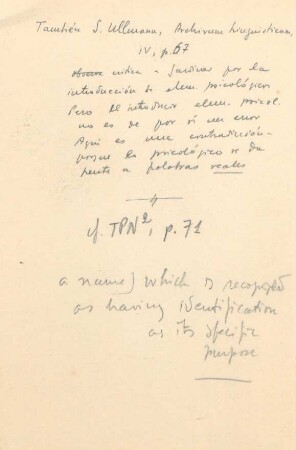 También S. Ullmann, Archivum Linguisticum,
IV, p. 67
critica a Gardiner por la
introducción de elem. psicológicos
Pero el introducir elem. psicol.
no es de por sí un error
Aquí es una contradicción
porque lo psicológico se da
frente a palabras reales
cf. TPN², p. 71
a name) which is recognized
as having identification
as its specific
purpose